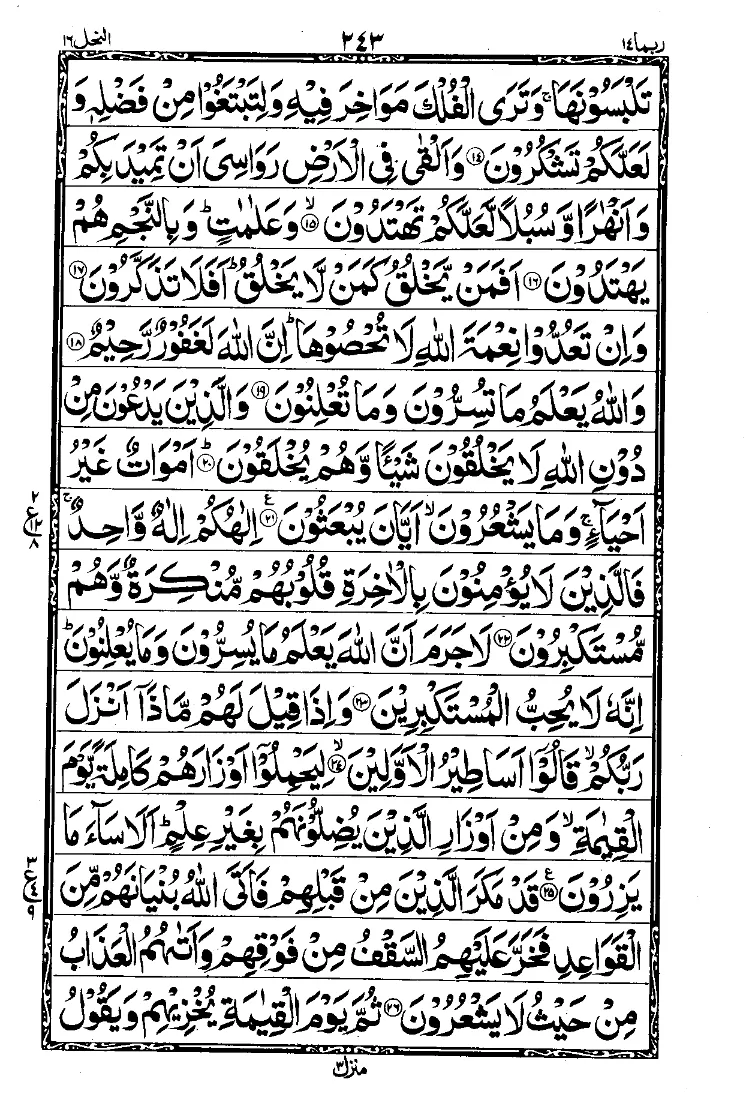 النحل ١٦ ٢٤٣ ربما ١٤
تَلْبَسُوْنَهَا ۚ وَتَرَى الْفُلْكَ مَوَاخِرَ فِيْهِ وَلِتَبْتَغُوْا مِنْ فَضْلِهٖ وَ
لَعَلَّكُمْ تَشْكُرُوْنَ ﴿١٤﴾ وَاَلْقٰى فِى الْاَرْضِ رَوَاسِىَ اَنْ تَمِيْدَ بِكُمْ
وَاَنْهٰرًا وَّسُبُلًا لَّعَلَّكُمْ تَهْتَدُوْنَ ۙ﴿١٥﴾ وَعَلٰمٰتٍ ؕ وَبِالنَّجْمِ هُمْ
يَهْتَدُوْنَ ﴿١٦﴾ اَفَمَنْ يَّخْلُقُ كَمَنْ لَّا يَخْلُقُ ؕ اَفَلَا تَذَكَّرُوْنَ ﴿١٧﴾
وَاِنْ تَعُدُّوْا نِعْمَةَ اللّٰهِ لَا تُحْصُوْهَا ؕ اِنَّ اللّٰهَ لَغَفُوْرٌ رَّحِيْمٌ ﴿١٨﴾
وَاللّٰهُ يَعْلَمُ مَا تُسِرُّوْنَ وَمَا تُعْلِنُوْنَ ﴿١٩﴾ وَالَّذِيْنَ يَدْعُوْنَ مِنْ
دُوْنِ اللّٰهِ لَا يَخْلُقُوْنَ شَيْـًٔا وَّهُمْ يُخْلَقُوْنَ ؕ﴿٢٠﴾ اَمْوَاتٌ غَيْرُ
اَحْيَآءٍ ۚ وَمَا يَشْعُرُوْنَ ۙ اَيَّانَ يُبْعَثُوْنَ ﴿٢١﴾ اِلٰهُكُمْ اِلٰهٌ وَّاحِدٌ ۚ
٢ ع ١٢ ٨
فَالَّذِيْنَ لَا يُؤْمِنُوْنَ بِالْاٰخِرَةِ قُلُوْبُهُمْ مُّنْكِرَةٌ وَّهُمْ
مُّسْتَكْبِرُوْنَ ﴿٢٢﴾ لَا جَرَمَ اَنَّ اللّٰهَ يَعْلَمُ مَا يُسِرُّوْنَ وَمَا يُعْلِنُوْنَ ؕ
اِنَّهٗ لَا يُحِبُّ الْمُسْتَكْبِرِيْنَ ﴿٢٣﴾ وَاِذَا قِيْلَ لَهُمْ مَّاذَاۤ اَنْزَلَ
رَبُّكُمْ ۙ قَالُوْۤا اَسَاطِيْرُ الْاَوَّلِيْنَ ۙ﴿٢٤﴾ لِيَحْمِلُوْۤا اَوْزَارَهُمْ كَامِلَةً يَّوْمَ
الْقِيٰمَةِ ۙ وَمِنْ اَوْزَارِ الَّذِيْنَ يُضِلُّوْنَهُمْ بِغَيْرِ عِلْمٍ ؕ اَلَا سَآءَ مَا
يَزِرُوْنَ ﴿٢٥﴾ قَدْ مَكَرَ الَّذِيْنَ مِنْ قَبْلِهِمْ فَاَتَى اللّٰهُ بُنْيَانَهُمْ مِّنَ
٤ ع ٩
الْقَوَاعِدِ فَخَرَّ عَلَيْهِمُ السَّقْفُ مِنْ فَوْقِهِمْ وَاَتٰىهُمُ الْعَذَابُ
مِنْ حَيْثُ لَا يَشْعُرُوْنَ ﴿٢٦﴾ ثُمَّ يَوْمَ الْقِيٰمَةِ يُخْزِيْهِمْ وَيَقُوْلُ
منزل ٣